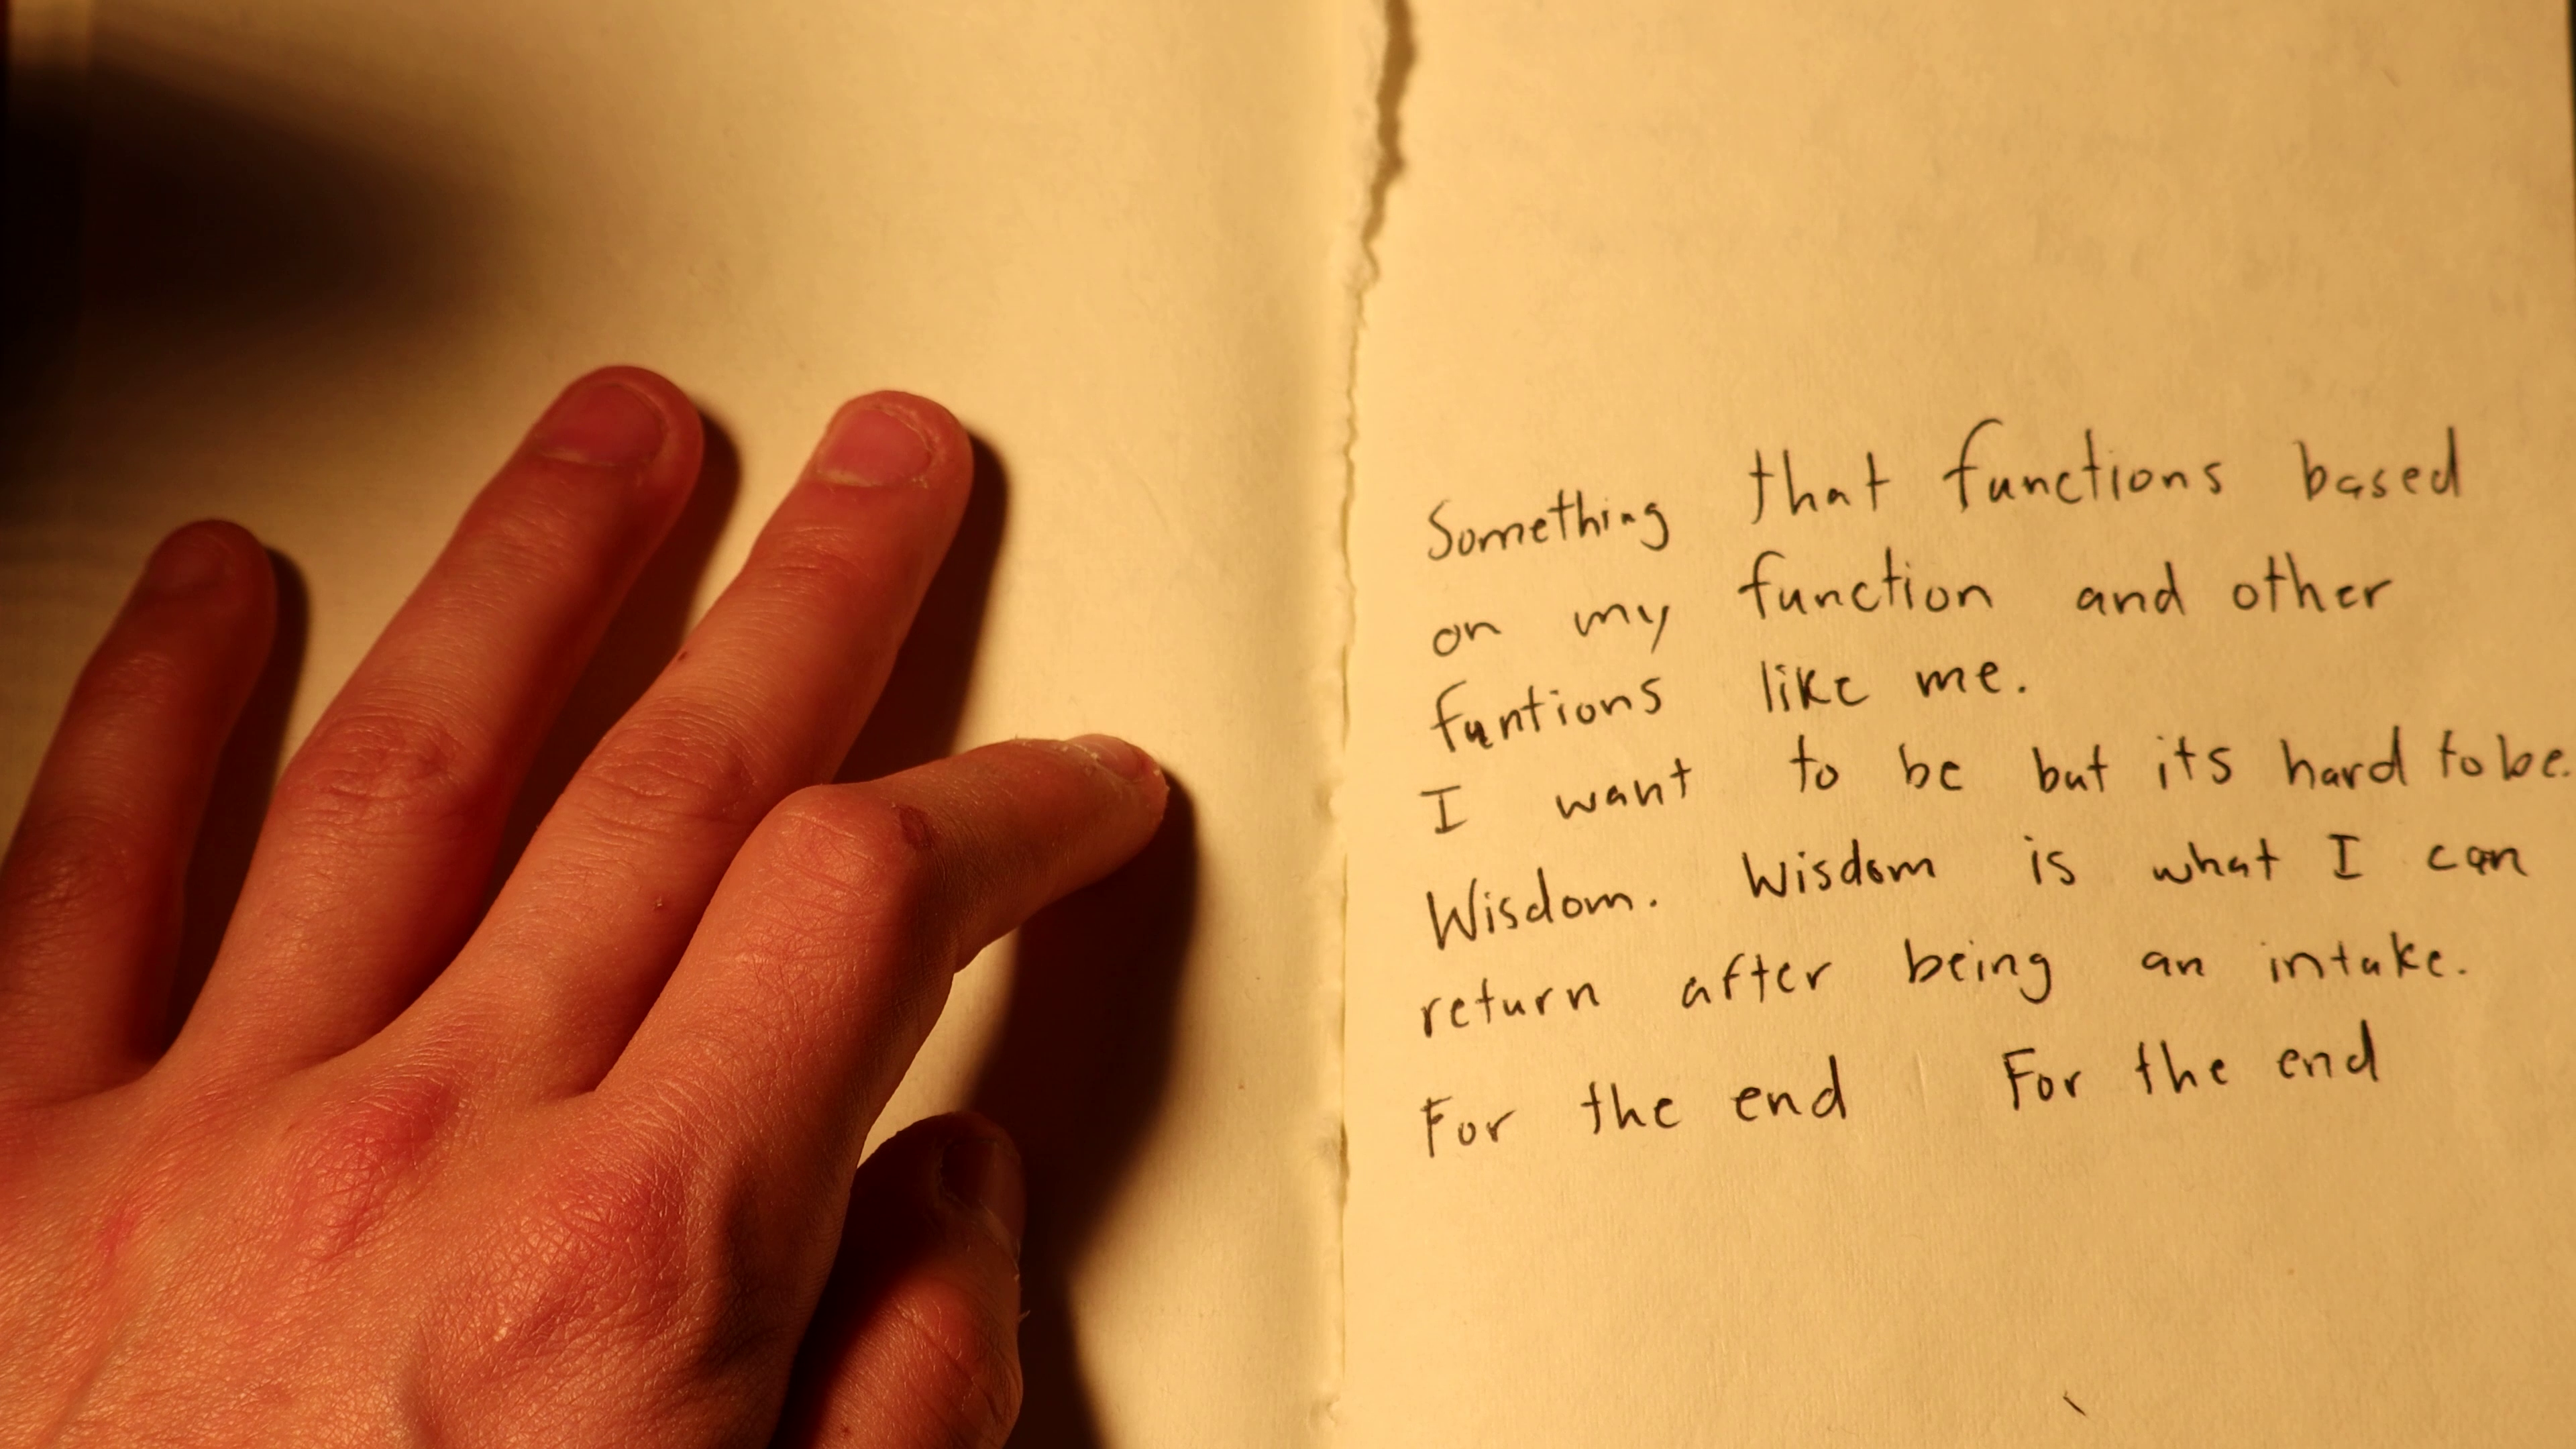 Something that functions based
on my function and other
funtions like me.
I want to be but its hard to be.
Wisdom. Wisdom is what I can
return after being an intake.
For the end For the end